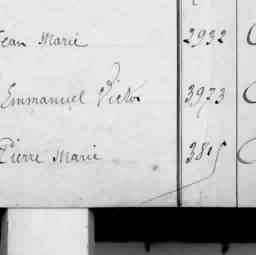 Jean Marie 2932
Emmanuel Victor 3973
Pierre Marie 3815